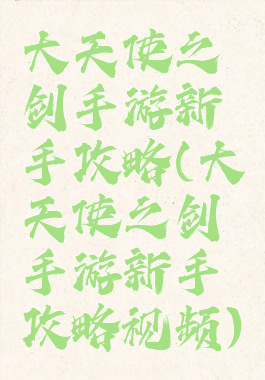 大天使之
剑手游新
手攻略(大
天使之剑
手游新手
攻略视频)